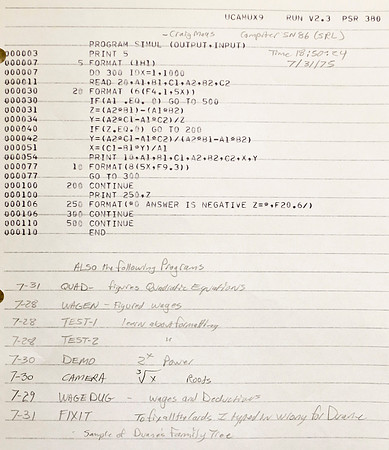 UCAMUX9 RUN V2.3 PSR 380
- Craig Mras Computer SN86 (SRL)
PROGRAM SIMUL (OUTPUT,INPUT) Time 18:50:24
000003 PRINT 5 7/31/75
000007 5 FORMAT (1H1)
000007 DO 300 IDX=1,1000
000011 READ 20,A1,B1,C1,A2,B2,C2
000030 20 FORMAT (6(F4.1,5X))
000030 IF(A1 .EQ. 0) GO TO 500
000031 Z=(A2*B1)-(A1*B2)
000037 Y=(A2*C1-A1*C2)/Z
000040 IF(Z.EQ.0) GO TO 200
000042 Y=(A2*C1-A1*C2)/(A2*B1-A1*B2)
000051 X=(C1-B1*Y)/A1
000054 PRINT 10,A1,B1,C1,A2,B2,C2,X,Y
000077 10 FORMAT(8(5X,F9.3))
000077 GO TO 300
000100 200 CONTINUE
000100 PRINT 250,Z
000106 250 FORMAT(*0 ANSWER IS NEGATIVE Z=*,F20.6/)
000106 300 CONTINUE
000110 500 CONTINUE
000110 END
ALSO the following Programs
7-31 QUAD - figures Quadratic Equations
7-28 WAGEN - Figured wages
7-28 TEST-1 learn about formatting
7-28 TEST-2 "
7-30 DEMO 2ˣ Power
7-30 CAMERA ³√x Roots
7-29 WAGEDUG - wages and Deductions
7-31 FIXIT To fix all the cards I typed in wrong for Duane
Sample of Duane's Fammily Tree